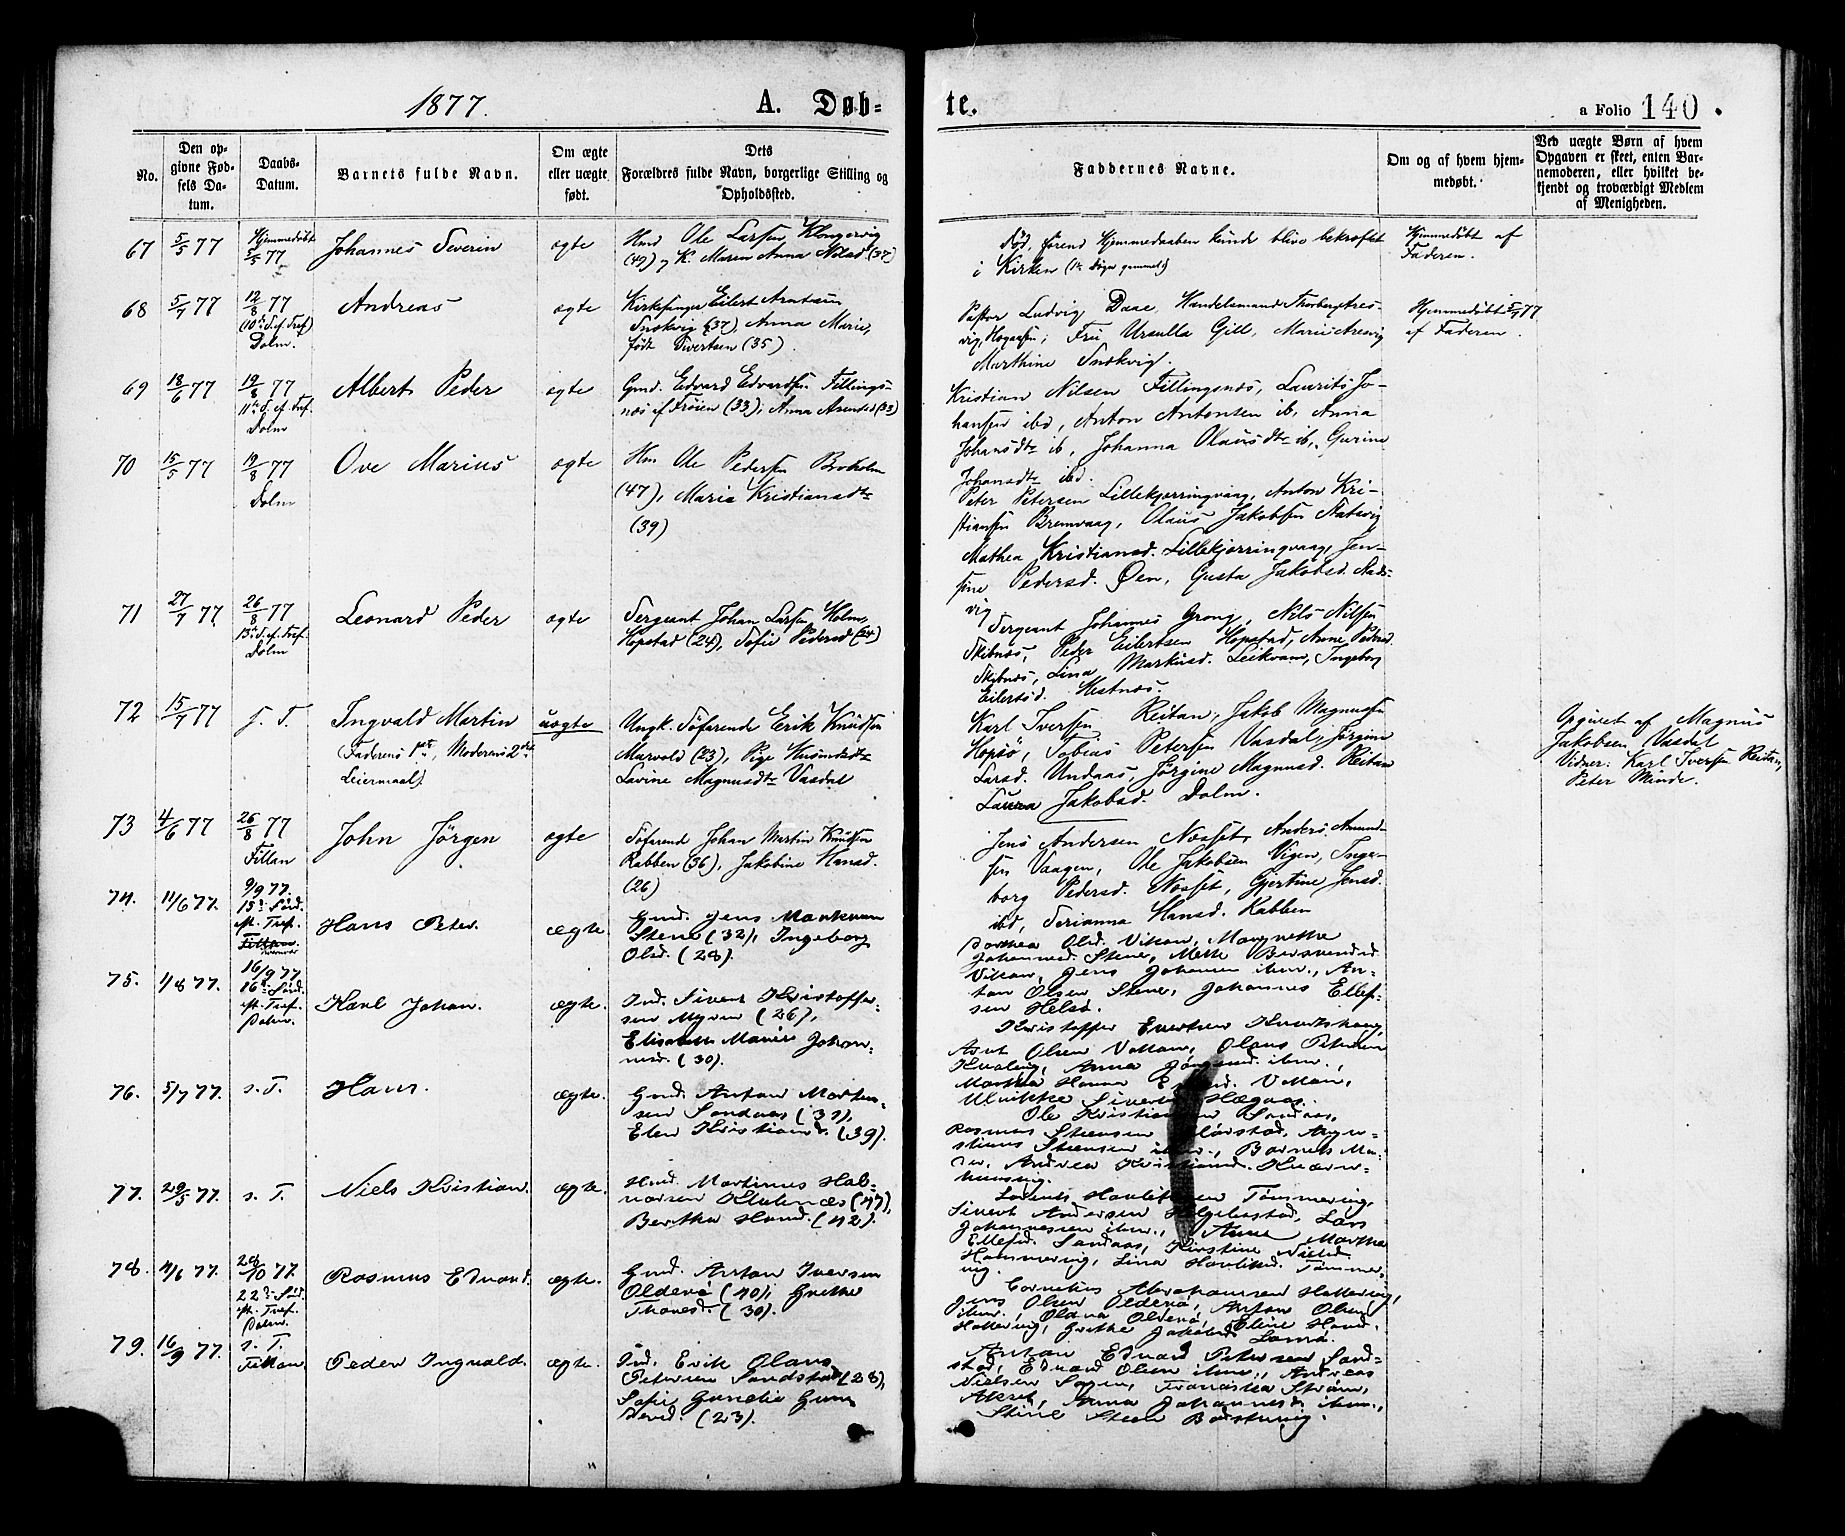 1877.
A. Døb-
te.
a Folio 140.
No.
Den op-
givne Fød-
sels Da-
tum.
Daabs-
Datum.
Barnets fulde Navn.
Om ægte
eller uægte
født.
Dets
Forældres fulde Navn, borgerlige Stilling og
Opholdssted.
Faddernes Navne.
Om og af hvem hjem-
medøbt.
Ved uægte Børn af hvem
Opgaven er skeet, enten Bar-
nemoderen, eller hvilket be-
kjendt og troværdigt Medlem
af Menigheden.
67
5/5 77
Hjemmedøbt
5/5 77
Johannes Severin
ægte
Hmd Ole Larsen
(49) og K. Maren Anna (37)
Død, førend Hjemmedaaben kunde blive bekræftet
i Kirken
Hjemmedøbt af
Faderen.
68
5/7 77
12/8 77
(10de S. ef. Tref)
Dolm.
Andreas
ægte
Kirkesanger Eilert
Snekvig (37), Anna Marie,
født Sivertsen (35)
Pastor Ludvig Daae, Handelsmand
Fru Ursulla Gill, Marie
Marthine Snekvig.
Hjemmedøbt 5/7 77
af Faderen.
69
18/6 77
19/8 77
11te S. ef. Tref.
Dolm
Albert Peder
ægte
Gmd. Edvard Edvardsen Fillings-
næs af Frøien (33), Anna (33)
Kristian Nilsen Fillingsnæs, Laurits Jo-
hansen ibd, Anton Antonsen ib, Anna
Johansdtr ib, Johanna Olausdtr ib, Gurine
Johansdtr ibd.
70
15/5 77
19/8 77
Dolm
Ove Marius
ægte
Hm Ole Pedersen
(47), Maria Kristiansdtr
(39)
Peter Petersen Lillekjerringvaag, Anton Kri-
stiansen Bremvaag, Olaus Jakobsen
Mathea Kristiansd. Lillekjerringvaag, Jen-
sine Pedersd. Øen, Gusta Jakobsd.
vig
71
27/7 77
26/8 77
13de S. ef. Tref.
Dolm
Leonard Peder
ægte
Sergeant Johan Larsen Holm,
Hopstad (24), Sofie Pedersd (24)
Sergeant Johannes Grong, Nils Nilsen
Skibnes, Peder Eilertsen Hopstad, Anne Pedersd
Skibnes, Lina Markusd. Leikvam, Ingeborg
Eilertsd. Hestnes.
72
15/7 77
s. T.
Ingvald Martin
(Faderens 1ste, Moderens 2det
Leiermaal).
uægte
Ungk. Søfarende Erik Knudsen
Marvold (23), Pige
Lavine Magnusdtr Vasdal
Karl Iversen Reitan, Jakob Magnussen
Hopsø, Tobias Petersen Vasdal, Jørgine
Larsd. Undaas, Jørgine Magnusd. Reitan
Laura Jakobsd. Dolm.
Opgivet af Magnus
Jakobsen Vasdal
Vidner: Karl Iversen Reitan,
Peter Minde.
73
4/6 77
26/8 77
Fillan
John Jørgen
ægte
Søfarend Johan Martin Knudsen
Rabben (36), Jakobine Hansd.
(26)
Jens Andersen Nesset, Anders Amund-
sen Vaagen, Ole Jakobsen Vigen, Inge-
borg Pedersd. Nesset, Gjertine Jensd.
ibd, Serianna Hansd. Rabben
74.
11/6 77.
9/9 77.
15de Sønd.
eft. Tref.
Hans Peter.
ægte.
Gmd. Jens
Stene (32), Ingeborg
Olsd. (28).
Dorthea Olsd. Vikan, Margrethe
Johannesd. Stene, Mette
Vikan, Jens Johansen ibm., An-
ton Olsen Stene, Johannes Ellef-
sen Helsø.
75.
1/8 77.
16/9 77
16de Sønd.
eft. Tref.
Dolm.
Karl Johan.
ægte.
Ind. Sivert Kristoffer-
sen Myren (26),
Elisabeth Marie Johan-
nesd. (30).
Kristoffer Evertsen
Arnt Olsen Vikan, Olaus Petersen
Kvaling, Anna ibm.,
Martha Hanna Vikan,
Ulrikke Sivertsd. Hægaas.
76.
5/7 77.
s. T.
Hans.
ægte.
Gmd. Anton Morten-
sen Sandaas (37),
Elen Kristiansd. (39).
Ole Kristiansen Sandaas,
Rasmus Steensen
stinus Steensen ibm., Barnets Mo-
der, Andrea Kristiansd.
77.
29/5 77.
s. T.
Niels Kristian.
ægte.
Hmd. Martinus Hal-
vorsen (47),
Berthe Hansd. (42).
Lorents Tømmervig,
Sivert Andersen Helgebostad, Lars
Johannessen ibm., Anne Martha
Ellefsd. Sandaas, Kirstine Nielsd.
Hammervig, Lina Tømmer-
vig.
78.
4/6 77.
28/10 77.
22de Sønd.
eft. Tref.
Dolm.
Rasmus Edvard.
ægte.
Gmd. Anton Iversen
Olderø (40), Grethe
(30).
Cornelius Abrahamsen Hattering,
Jens Olsen Olderø, Anton Olsen
ibm., Oldine Olderø, Eline Hansd.
Hattering, Grethe Jakobsd.
79.
16/9 77.
s. T.
Fillan
Peder Ingvald.
ægte.
Ind. Erik Olaus
Petersen Sandstad (28),
Sofie Gunelie
(23).
Anton Edvard Petersen Sand-
stad, Edvard Olsen ibm., Andreas
Nielsen Franciska Strøm,
Akset, Anna Johannesd. ibm.,
Stine Steen